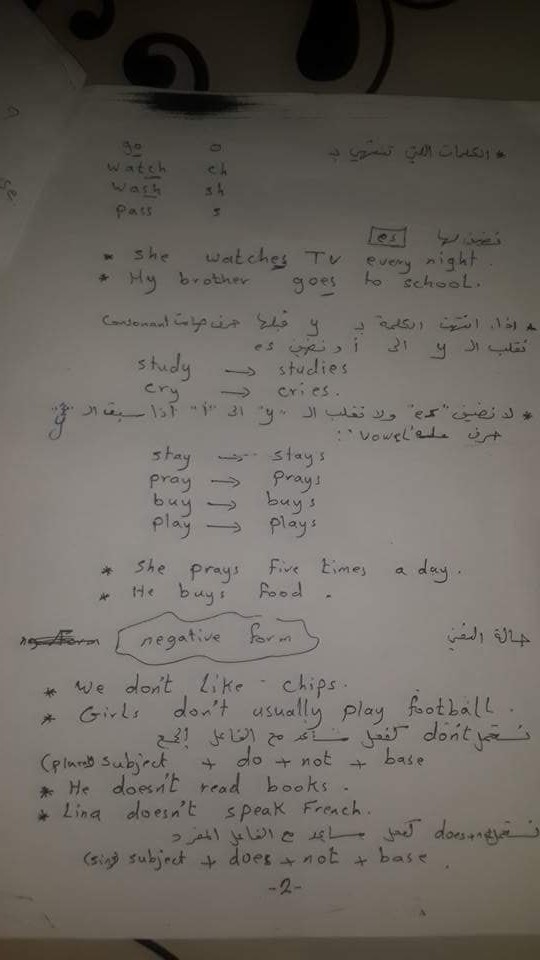 * الكلمات اللتي تنتهي بـ
go o
watch ch
wash sh
pass s
نضيف لها es
* she watches TV every night.
* My brother goes to school.
* اذا انتهت الكلمة بـ y قبلها حرف صامت consonant
نقلب الـ y الى i و نضيف es
study → studies
cry → cries.
* لا نضيف "es" ولا نقلب الـ "y" الى "i" اذا سبق الـ "y"
حرف علة "vowel":
stay → stays
pray → prays
buy → buys
play → plays
* She prays five times a day.
* He buys food.
negative form حالة النفي
* We don't like chips.
* Girls don't usually play football.
نستعمل don't كفعل مساعد مع الفاعل الجمع
(plural) subject + do + not + base
* He doesn't read books.
* Lina doesn't speak French.
نستعمل does+not كفعل مساعد مع الفاعل المفرد
(sing) subject + does + not + base.
-2-